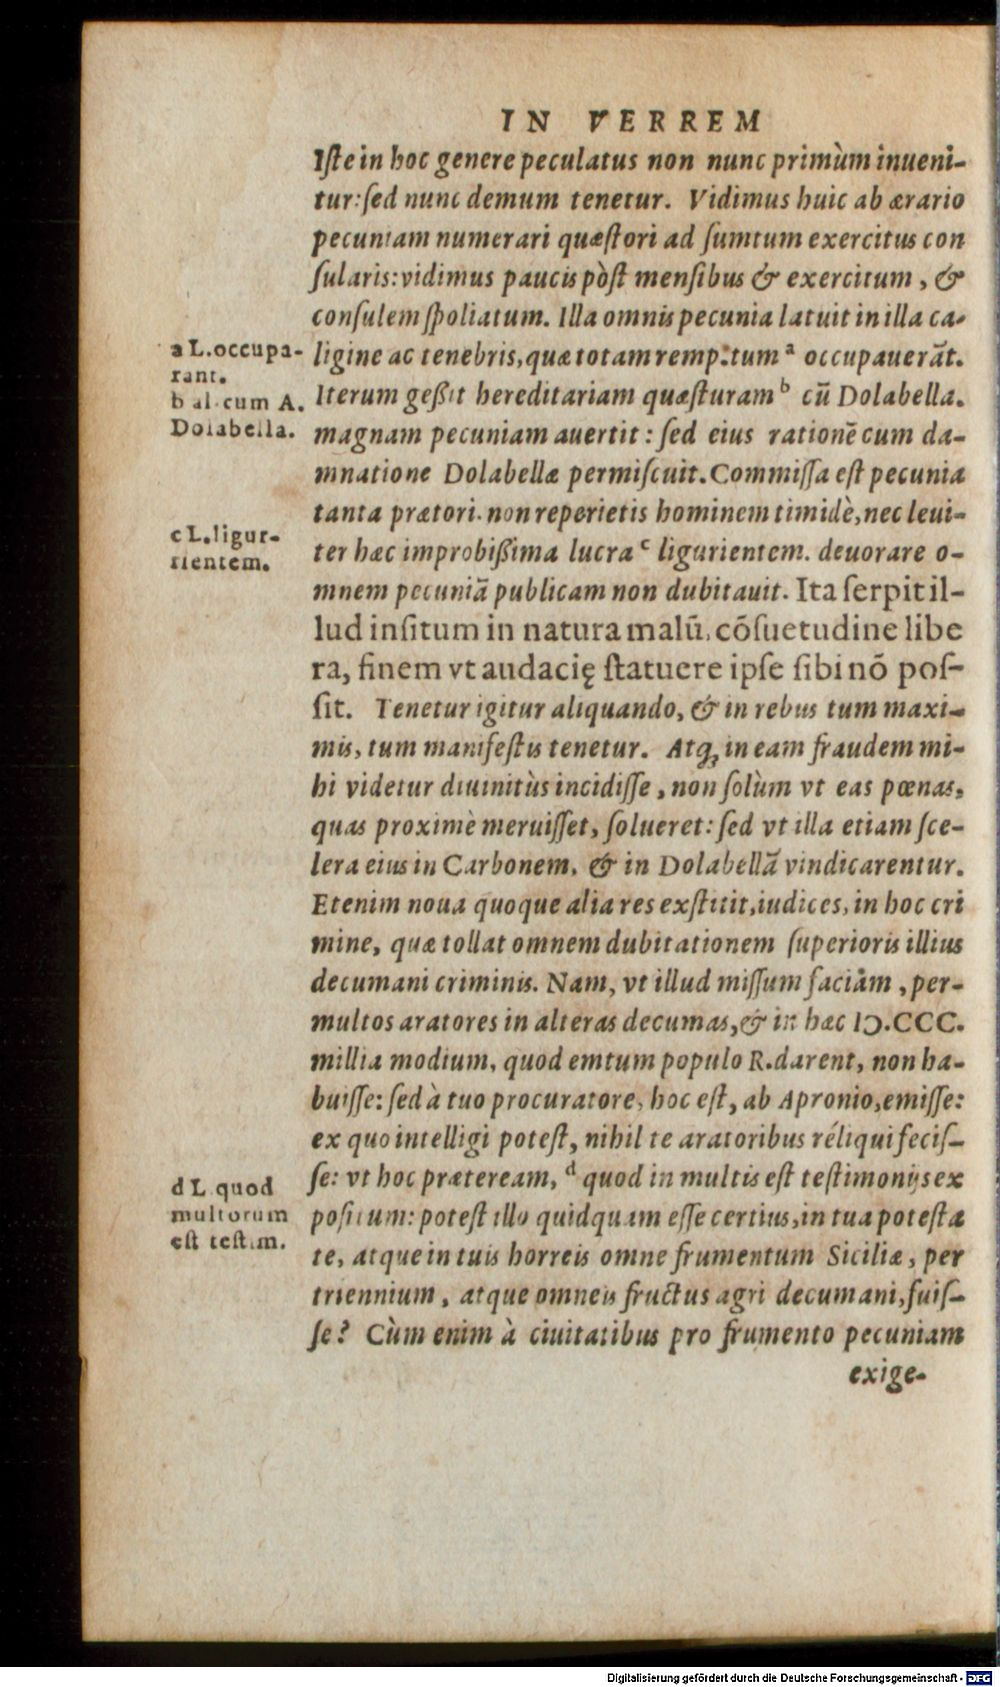 IN VERREM
Iste in hoc genere peculatus non nunc primùm inueni-
tur: sed nunc demum tenetur. Vidimus huic ab ærario
pecuniam numerari quæstori ad sumtum exercitus con
sularis: vidimus paucis pòst mensibus & exercitum, &
consulem spoliatum. Illa omnis pecunia latuit in illa ca-
ligine ac tenebris, quæ totam remp. tum ª occupauerāt.
Iterum geßit hereditariam quæsturam b cū Dolabella.
magnam pecuniam auertit: sed eius rationē cum da-
mnatione Dolabellæ permiscuit. Commissa est pecunia
tanta prætori. non reperietis hominem timidè, nec leui-
ter hæc improbißima lucra c ligurientem. deuorare o-
mnem pecuniā publicam non dubitauit. Ita serpit il-
lud insitum in natura malū, cōsuetudine libe
ra, finem vt audacię statuere ipse sibi nō pos-
sit. Tenetur igitur aliquando, & in rebus tum maxi-
mis, tum manifestis tenetur. Atq; in eam fraudem mi-
hi videtur diuinitùs incidisse, non solùm vt eas pœnas,
quas proximè meruisset, solueret: sed vt illa etiam sce-
lera eius in Carbonem, & in Dolabellā vindicarentur.
Etenim noua quoque alia res exstitit, iudices, in hoc cri
mine, quæ tollat omnem dubitationem superioris illius
decumani criminis. Nam, vt illud missum faciam, per-
multos aratores in alteras decumas, & in hæc IↃ.CCC.
millia modium, quod emtum populo R. darent, non ha-
buisse: sed à tuo procuratore, hoc est, ab Apronio, emisse:
ex quo intelligi potest, nihil te aratoribus réliqui fecis-
se: vt hoc præteream, d quod in multis est testimonijs ex
positum: potest illo quidquam esse certius, in tua potesta
te, atque in tuis horreis omne frumentum Siciliæ, per
triennium, atque omneis fructus agri decumani, fuis-
se? Cùm enim à ciuitatibus pro frumento pecuniam
exige-
a L. occupa-
rant.
b al. cum A.
Dolabella.
c L. ligur-
rientem.
d L. quod
multorum
est testim.
Digitalisierung gefördert durch die Deutsche Forschungsgemeinschaft - DFG